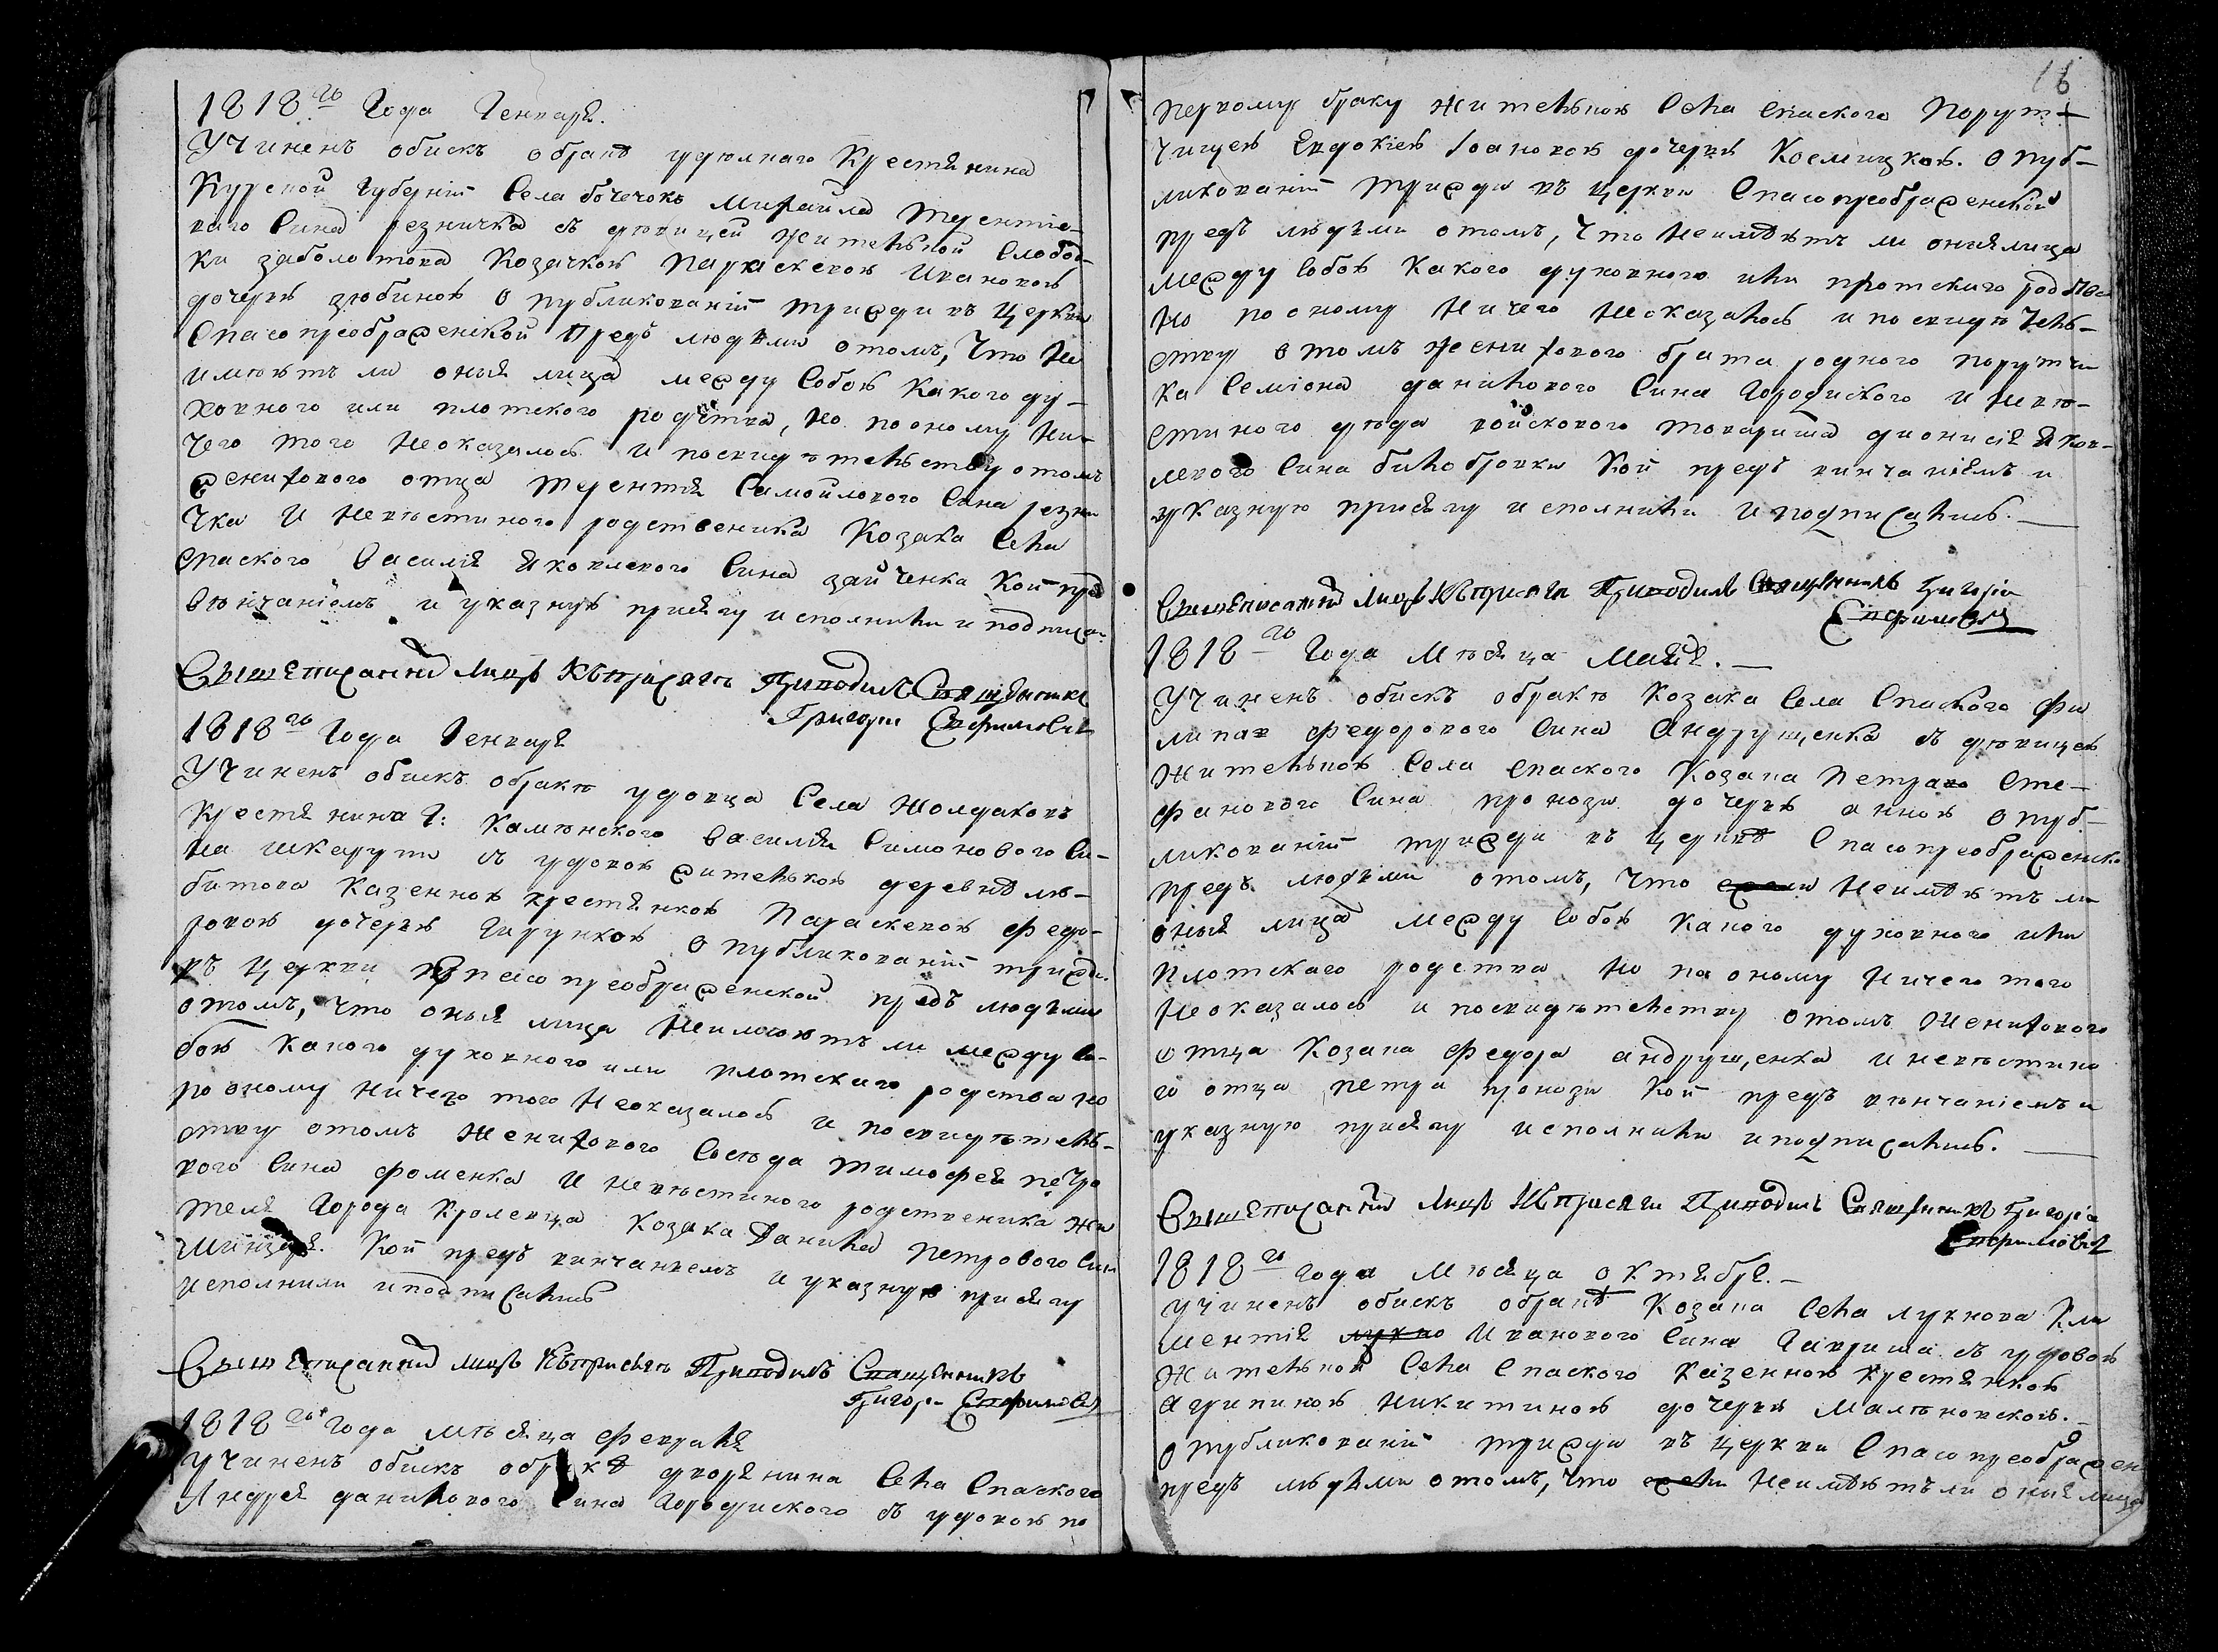 1818го Года Генваря.
Учиненъ обискъ о бракѣ удѣлнаго Крестянина
Курской Губерніи Села бочечокъ Михайла Терентіе-
ваго Сина резничка съ дѣвицей жителъкой Слобод-
ки заболотова Козачкою Параскевою Ивановою
дочерю зюбиною о публикованіи трижди въ Церкви
Спасопреображенской предъ людми отомъ, что не
имѣютъ ли оныя лица между Собою какого ду-
ховного или плотского родства, но по оному ни-
чего того неоказалось и посвидѣтелъству отомъ
женихового отца Терентія Самойлового Сина резни
чка И невѣстиного родственика Козака Села
спаского Василія Яковлевого Сина зайченка Кои предъ
вѣнчаніемъ и указную присягу исполнили и подписа-
Вышеписанній лицъ Къ присягѣ Приводилъ Священникъ
Григорій Ефимовичъ
1818го Года Генваря
Учиненъ обискъ о бракѣ удовца Села жолдаковъ
Крестянина Г: Каменского Василія Симонового Си-
на шкарути съ удовою жителъкою деревнѣ лю-
битова Казенною крестянкою Параскевою Федо-
ровою дочерю Гирункою о публикованіи трижди
въ Церкви Спасопреображенской предъ людми
отомъ, что оныя лица неимѣютъ ли между Со-
бою какого духовного или плотскаго родства но
по оному ничего того неоказалось и посвидѣтелъ-
ству отомъ женихового Сосѣда Тимофея петро
вого Сина фоменка И невѣстиного родственика жи
теля Города Кролевца Козака Данила Петрового Сина
Шинкаря. Кои предъ винчаніемъ и указную присягу
исполнили и подписались
Вышеписанній лицъ Къ присягѣ Приводилъ Священникъ
Григорій Ефимовичъ
1818го Года мѣсяца Февраля
учиненъ обискъ о бракѣ дворянина Села Спаского
Андрея данилового Сина Городиского съ удовою по
16
первому браку жителъкою Села спаского Порут-
чицею Евдокіею Іоановою дочерю Косницкою. о пуб-
ликованіи трижди въ церкви Спасопреображенской
предъ людми отомъ, что неимѣютъ ли оныя лица
между Собою какого духовного или плотскаго родства
но по оному ничего неоказалось и посвидѣтелъ-
ству отомъ женихового брата родного порутчи
ка Семіона данилового Сина Городиского и невѣ-
стиного дѣда войскового товариша дионисія Яков-
левого Сина билобровки Кои предъ винчаніемъ и
указную присягу исполнили и подписались.
Вышеписанній лицъ Къ присягѣ Приводилъ Священникъ Григорій
Ефимовичъ
1818го Года Мѣсяца Майя.
Учиненъ обискъ о бракѣ козака Села Спаского Фи
липа Федорового Сина Андрущенка съ дѣвицею
жителъкою Села спаского Козака Петра Сте-
фанового Сина пронози дочерю анною о пуб-
ликованіи трижди въ церквѣ Спасопреображенско
предъ людми отомъ, что неимѣютъ ли
оныя лица между Собою какого духовного или
плотскаго родства но по оному ничего того
неоказалось и посвидѣтелству отомъ женихового
отца Козака Федора андрущенка и невѣстино
го отца петра пронози кои предъ вѣнчаніемъ и
указную присягу исполнили и подписались.
Вышеписанній лицъ Къ присяги Приводилъ Священникъ Григорій
Ефимовичъ
1818го Года мѣсяца октября.
учиненъ обискъ о бракѣ Козака Села лукнова Кли
ментія Иванового Сина Гавриша съ удовою
жителъкой Села Спаского Казенною крестянкою
агрипиною никитиною дочерю Маляновскою.
о публикованіи трижди въ церкви Спасопреображен
предъ людми отомъ, что неимѣютъ ли оныя лица